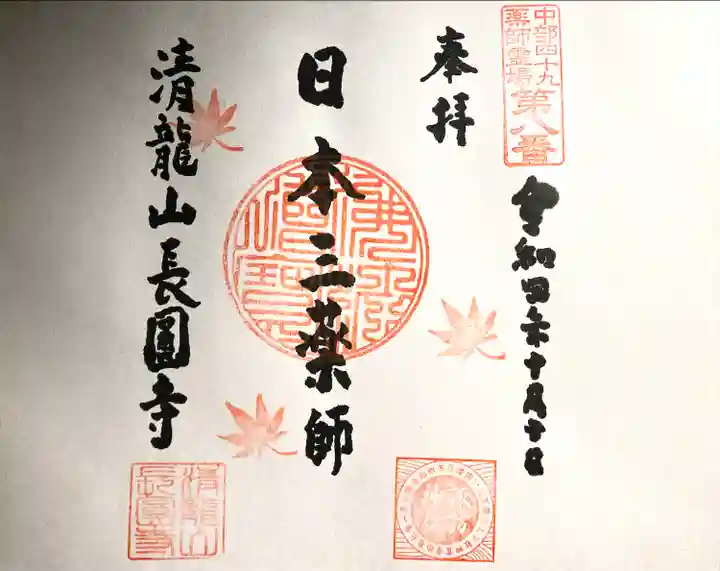 中部四十九
薬師霊場
第八番
奉拝
令和四年十月十日
日本三薬師
清龍山長圓寺
清龍山
長圓寺